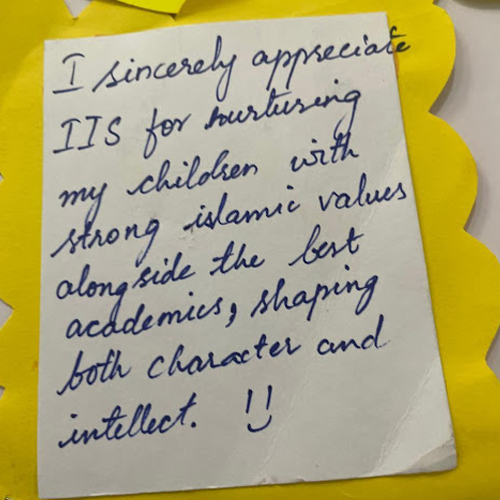 I sincerely appreciate
IIS for nurturing
my children with
strong islamic values
alongside the best
academics, shaping
both character and
intellect. !!